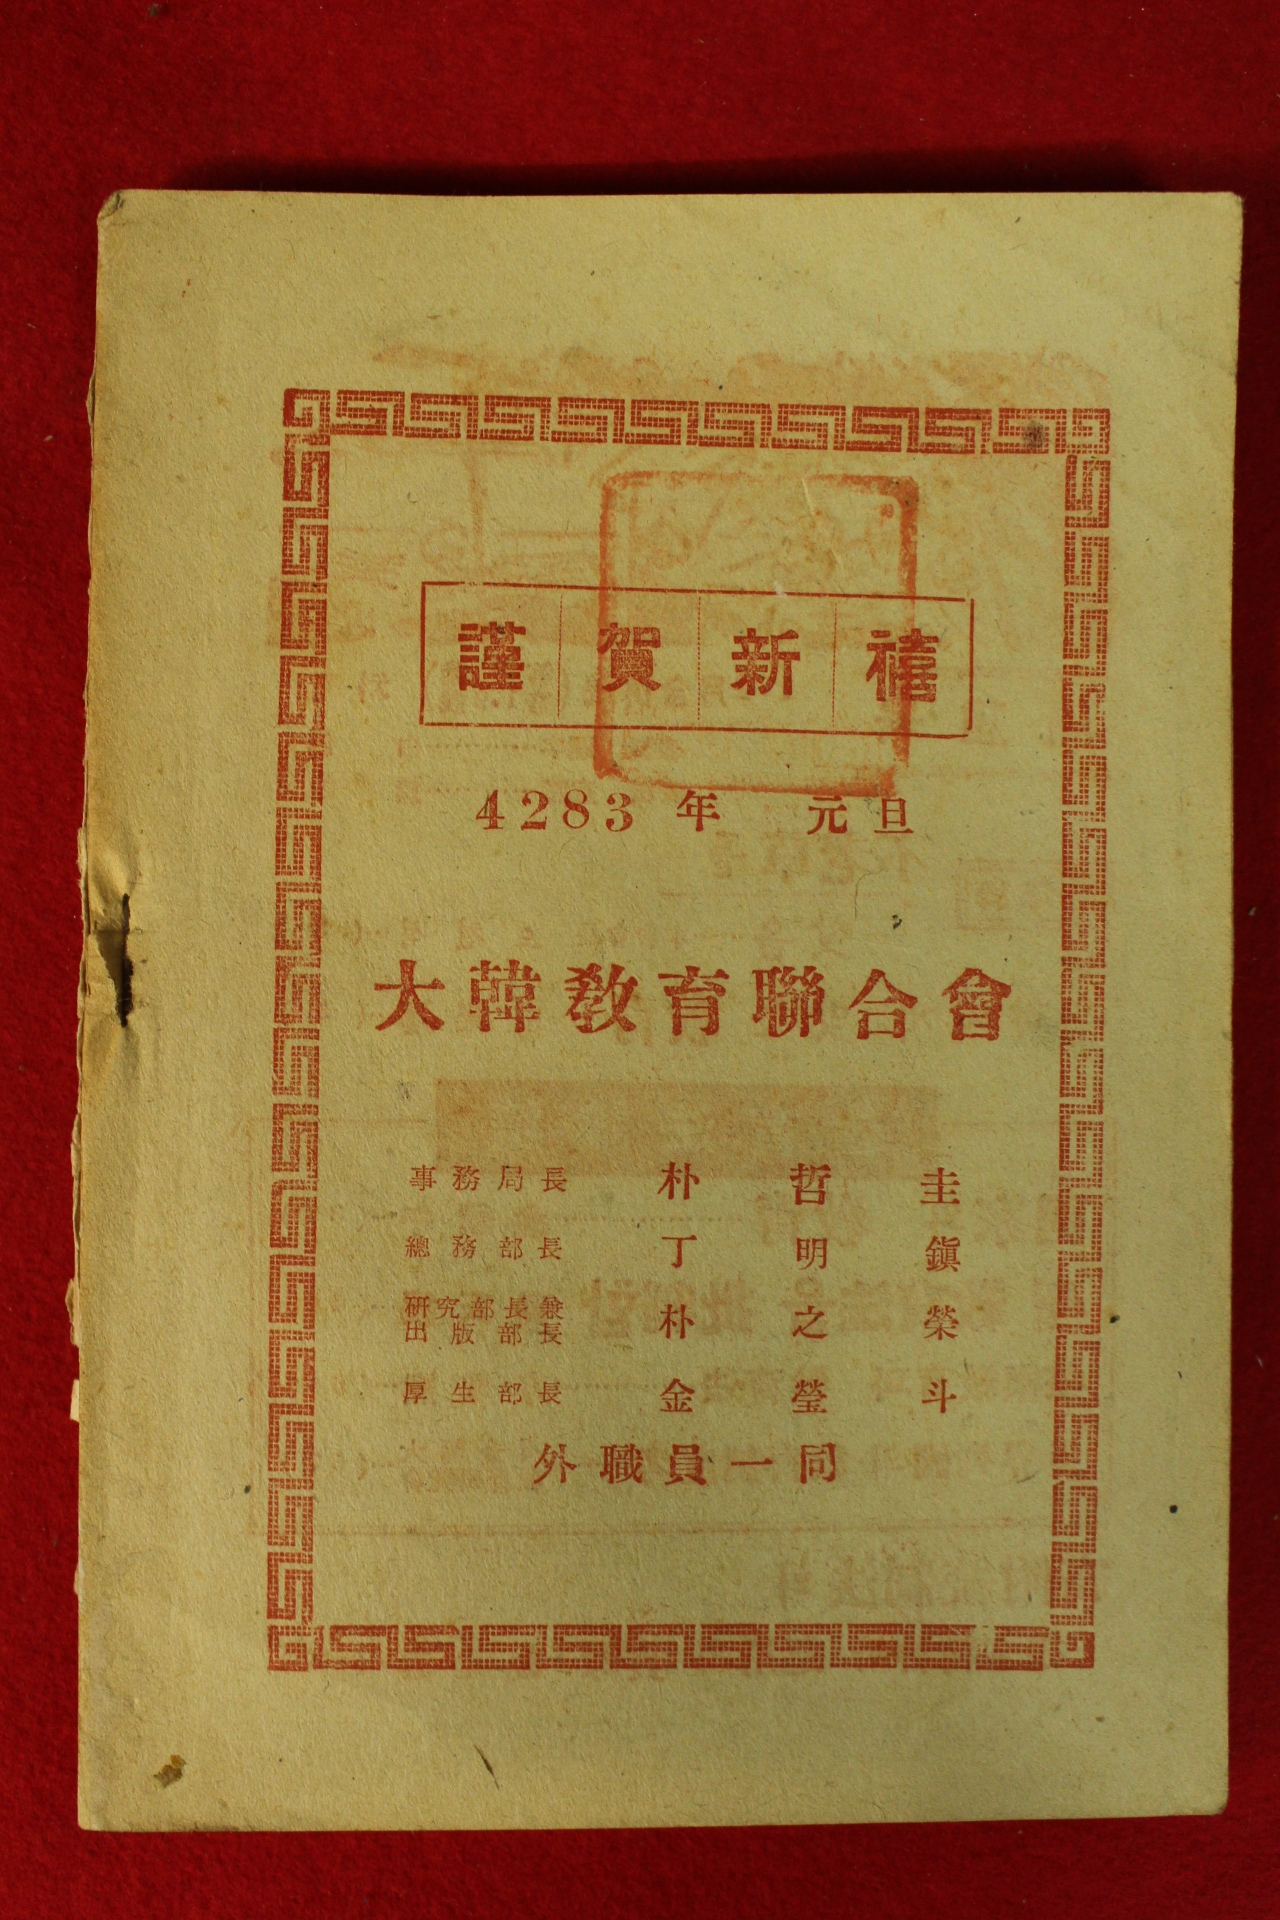 謹賀新禧
4283年 元旦
大韓教育聯合會
事務局長 朴哲圭
總務部長 丁明鎭
研究部長兼
出版部長 朴之榮
厚生部長 金瑩斗
外職員一同